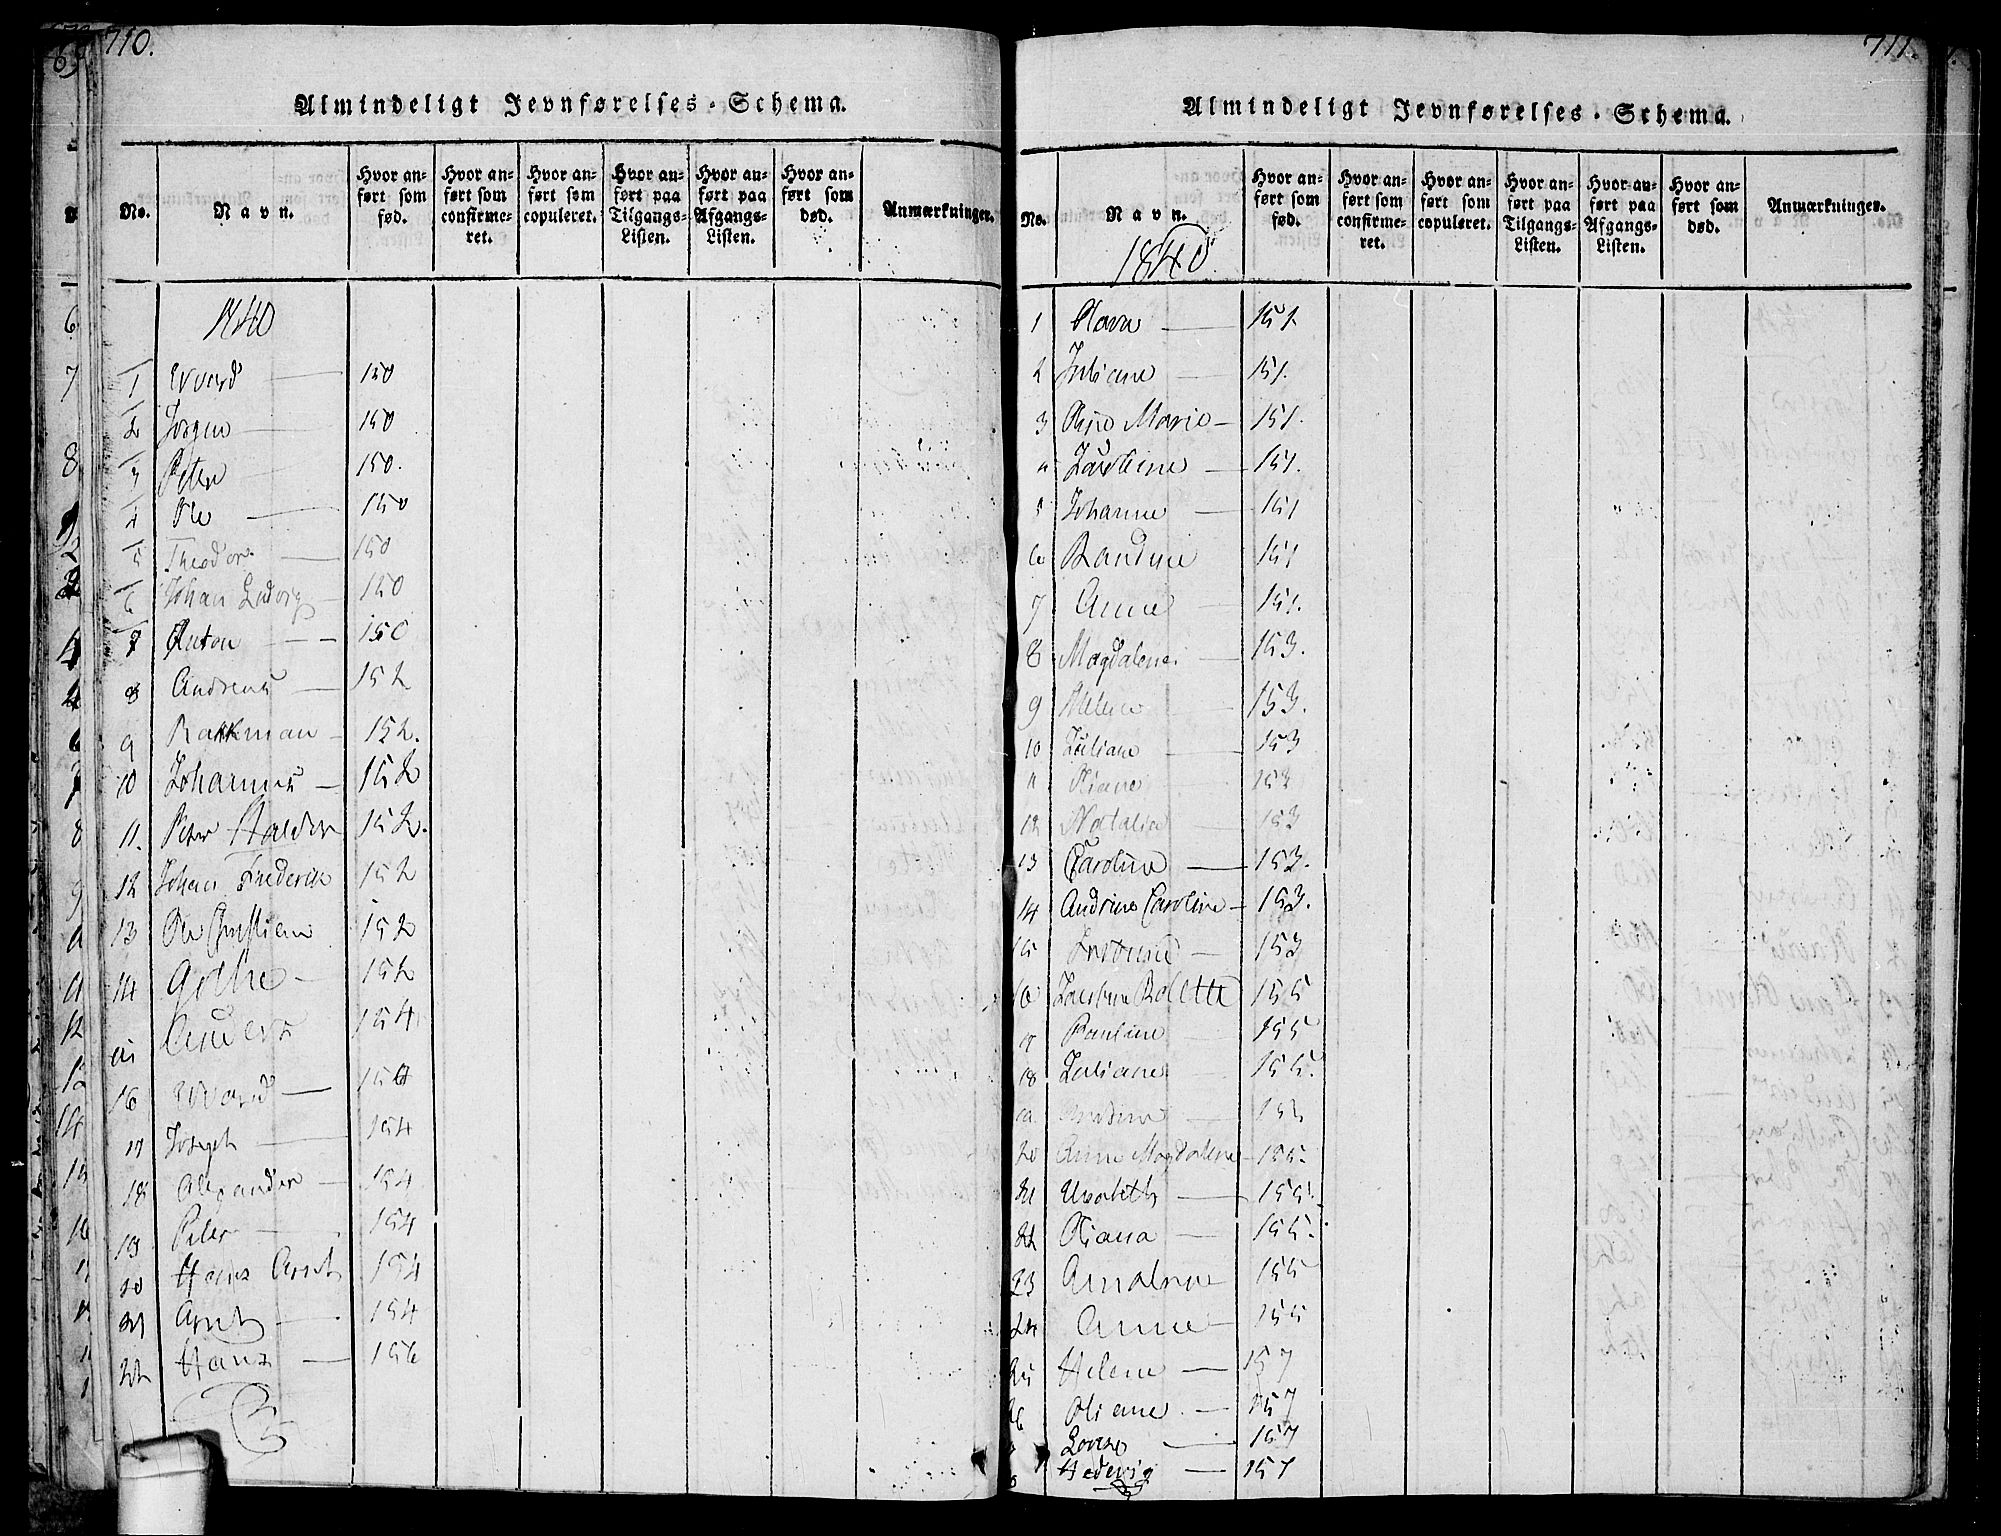 710.
Almindeligt Jevnførelses-Schema.
No. Navn. Hvor anført som fød. Hvor anført som confirmeret. Hvor anført som copuleret. Hvor anført paa Tilgangs-Listen. Hvor anført paa Afgangs-Listen. Hvor anført som død. Anmærkninger.
1840
1 Evard 150
2 Jørgen 150
3 Peter 150.
4 Ole 150
5 Theodor 150
6 Johan Ludvig 150
7 Anton 150
8 Andreas 152
9 152.
10 Johannes 152
11. Peter Halder 152.
12 Johan Frederik 152
13 Ole Christian 152
14 152
15 Anders 154
16 Evard 154
17 Joseph 154
18 Alexander 154
19 Peter 154
20 Hans Arnt 154
21 Arnt 154
22 Hans 156
711.
Almindeligt Jevnførelses-Schema.
No. Navn. Hvor anført som fød. Hvor anført som confirmeret. Hvor anført som copuleret. Hvor anført paa Tilgangs-Listen. Hvor anført paa Afgangs-Listen. Hvor anført som død. Anmærkninger.
1840
1 Olava 151
2 Juliane 151.
3 Marie 151.
4 151.
5 Johanne 151
6 Randine 151
7 Anne 151.
8 Magdalene 153.
9 Helene 153.
10 Juliane 153
11 Oliane 153
12 Natalia 153
13 Caroline 153.
14 Andrine Caroline 153.
15 153
16 Jacobine Bolette 155
17 Pauline 155
18 Juliane 155.
19 155
20 Anne Magdalene 155.
21 Elisabeth 155.
22 Oliana 155.
23 155
24 Anne 155
25 Helene 157
26 Oliane 157
Lovise 157
Hedevig 157